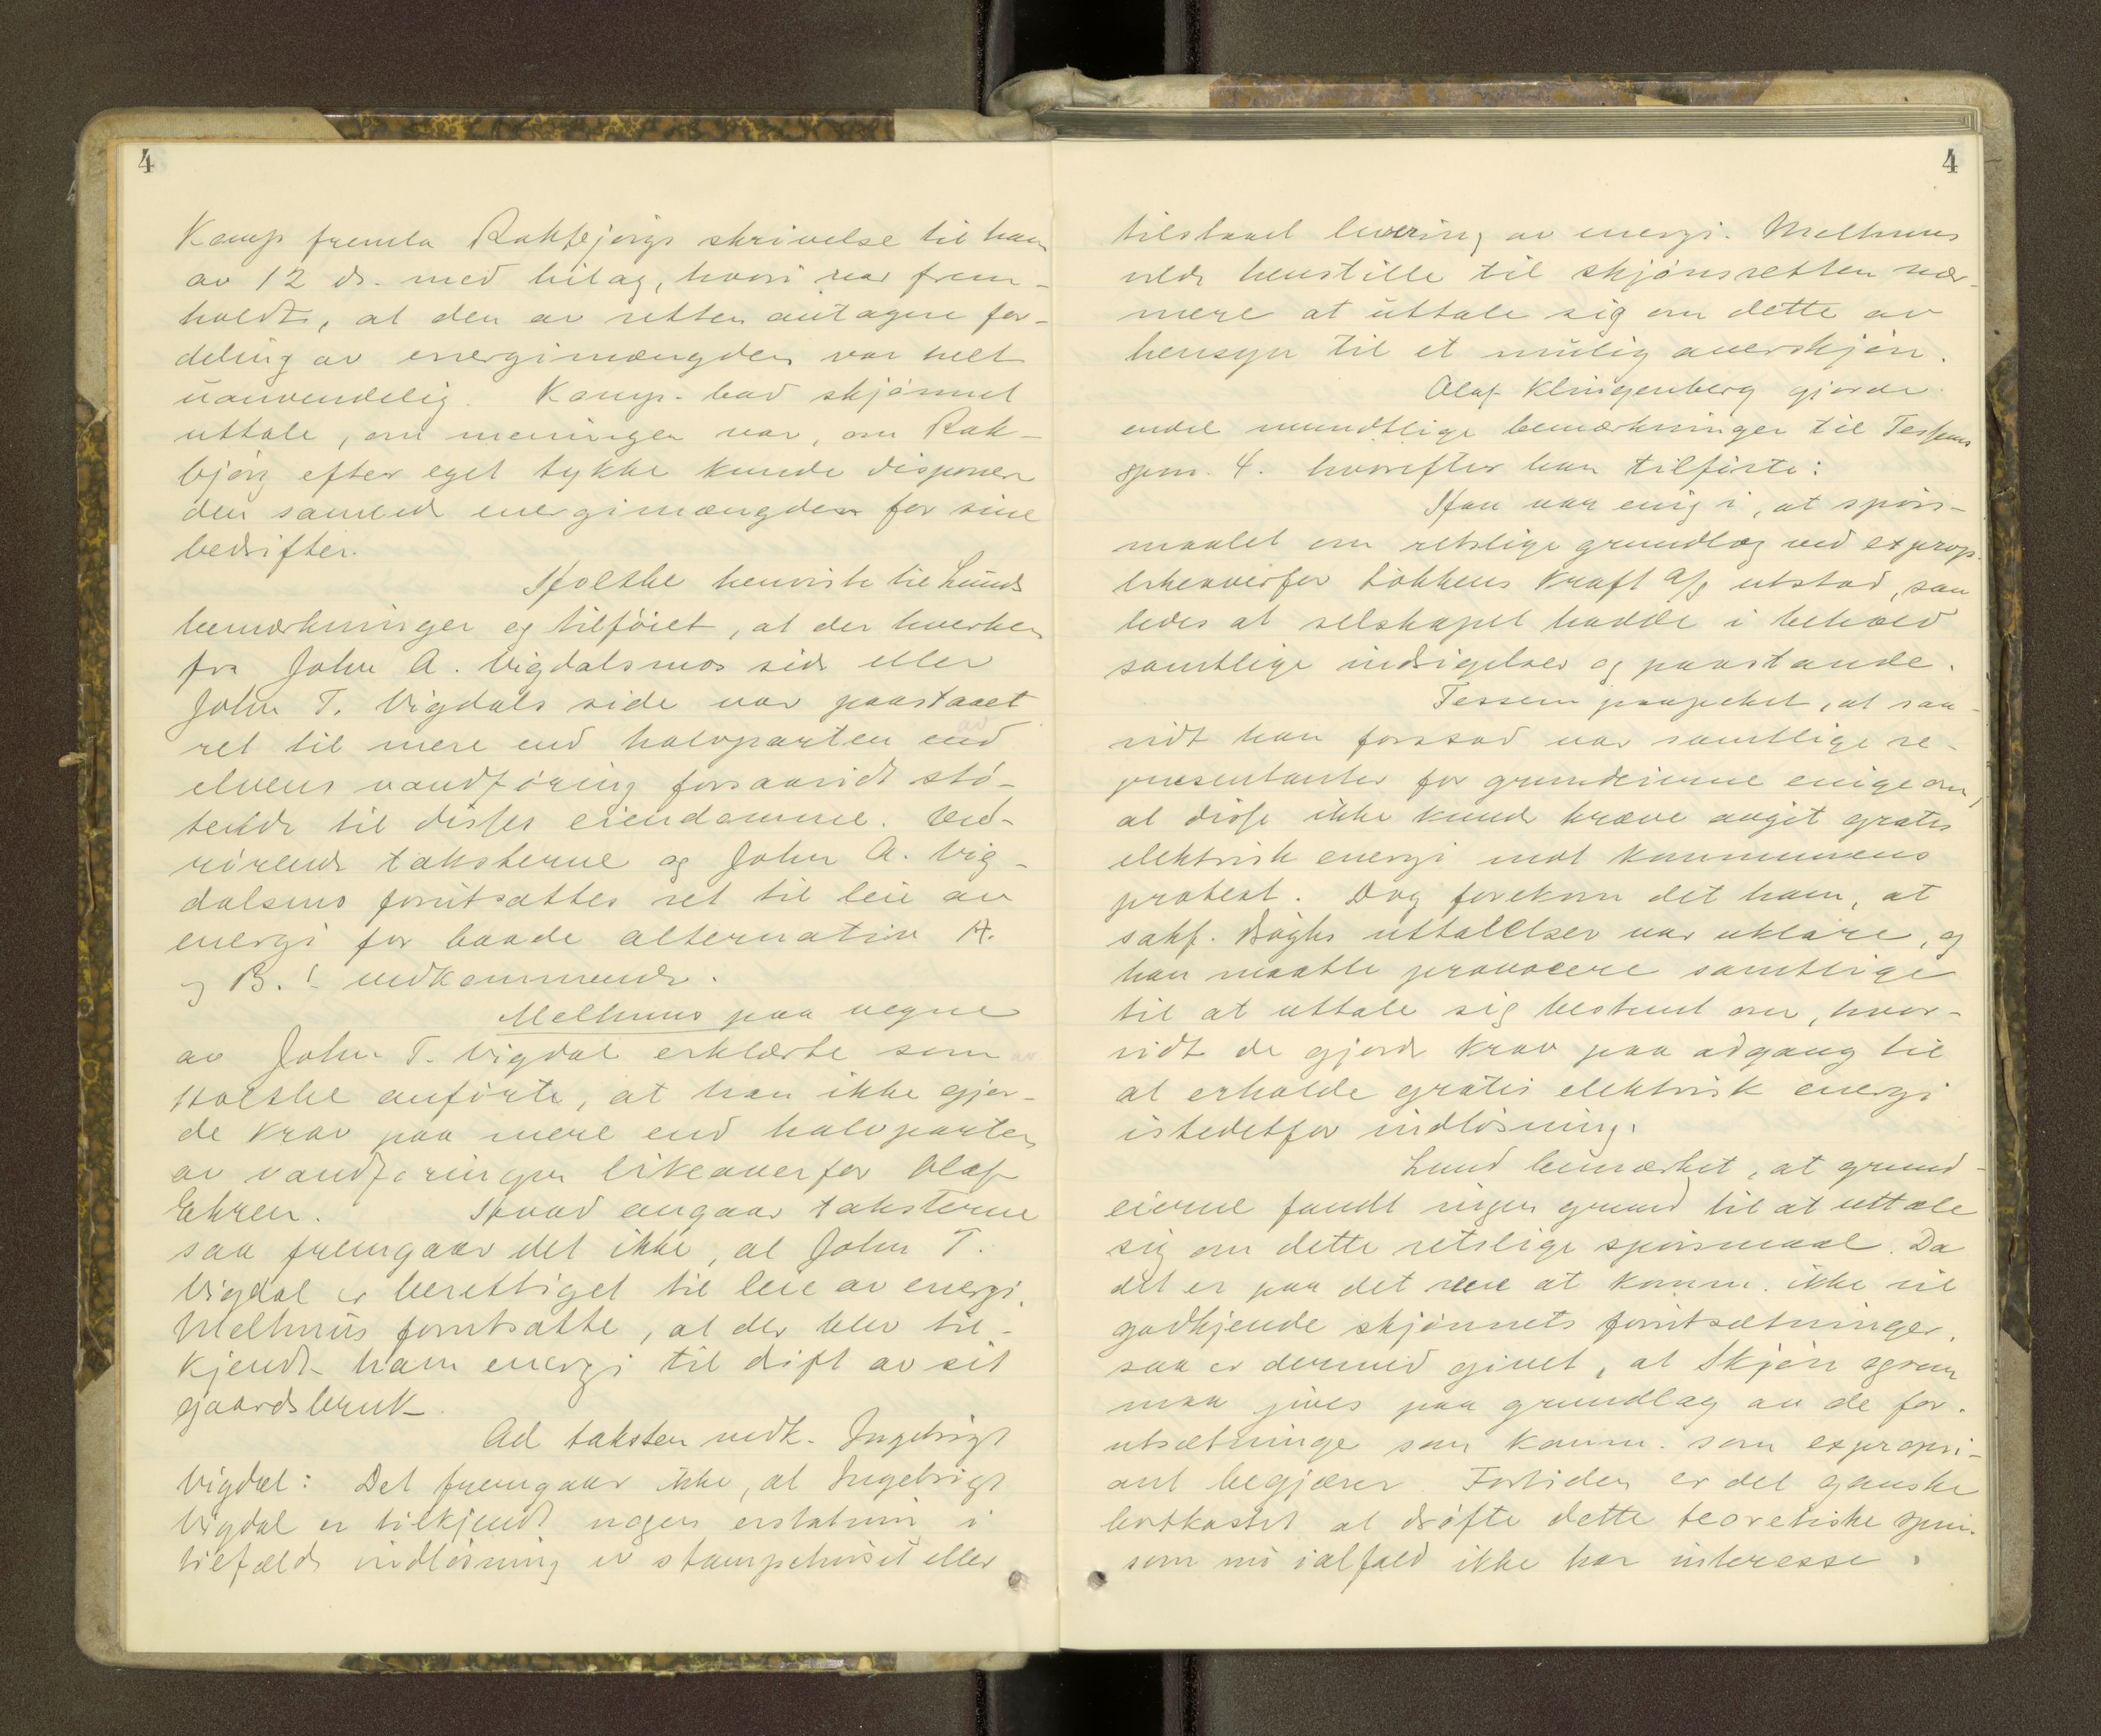 4
Kamp fremla Rakbjørgs skrivelse til ham
av 12 ds. med bilag, hvori var frem-
holdt, at den av retten antagne for-
deling av energimængden var helt
uanvendelig. Kamp. bad skjønnet
uttale, om meningen var, om Rak-
bjørg efter eget tykke kunde disponere
den samlede energimængden for sine
bedrifter.
Holthe henviste til Lunds
bemerkninger og tilføiet, at der hverken
fra John A. Vigdalsmos side eller
John T. Vigdals side var paastaaet
ret til mere end halvparten av
elvens vandføring forsaavidt stø-
tende til disses eiendomme. Ved-
rørende taksterne og John A. Vig-
dalsmo forutsattes ret til leie av
energi for baade alternativ A.
og B.s vedkommende.
Melhuus paa vegne
av John T. Vigdal erklærte som
Holthe anførte, at han ikke gjor-
de krav paa mere end halvparten
av vandføringen likeoverfor Olaf
Ehren. Hvad angaar taksterne
saa fremgaar det ikke, at John T.
Vigdal er berettiget til leie av energi.
Melhuus forutsatte, at der blev til-
kjendt ham energi til drift av sit
gaardsbruk.
Ad taksten vedk. Ingebrigt
Vigdal: Det fremgaar ikke, at Ingebrigt
Vigdal er tilkjendt nogen erstatning i
tilfælde indløsning av stampehuset eller
4
tilstaaet levering av energi. Melhuus
vilde henstille til skjønsretten nær-
mere at uttale sig om dette av
hensyn til et mulig overskjøn.
Olaf Klingenberg gjorde
endel mundtlige bemærkninger til Tessems
spm. 4. hvorefter han tilførte:
Han var enig i, at spørs-
maalet om retslige grundlag ved exprop.
likeoverfor Løkkens Kraft A/S utstod, saa
ledes at selskapet hadde i behold
samtlige indsigelser og paastande.
Tessem paapeket, at saa-
vidt han forstod var samtlige re-
presentanter for grundeierne enige om,
at disse ikke kunde kræve avgit gratis
elektrisk energi mot kommunens
protest. Dog forekom det ham, at
sakf. Bøghs uttalelser var uklare, og
han maatte provocere samtlige
til at uttale sig bestemt om, hvor-
vidt de gjorde krav paa adgang til
at erholde gratis elektrisk energi
istedetfor indløsning.
Lund bemærket, at grund-
eierne fandt ingen grund til at uttale
sig om dette retslige spørsmaal. Da
det er paa det rene at komm. ikke vil
godkjende skjønnets forutsætninger,
saa er dermed givet, at Skjøn ogsaa
maa gives paa grundlag av de for-
utsætninge som komm. som expropri-
ant begjærer. Fortiden er det ganske
bortkastet at drøfte dette teoretiske spm.
som nu ialfald ikke har interesse.